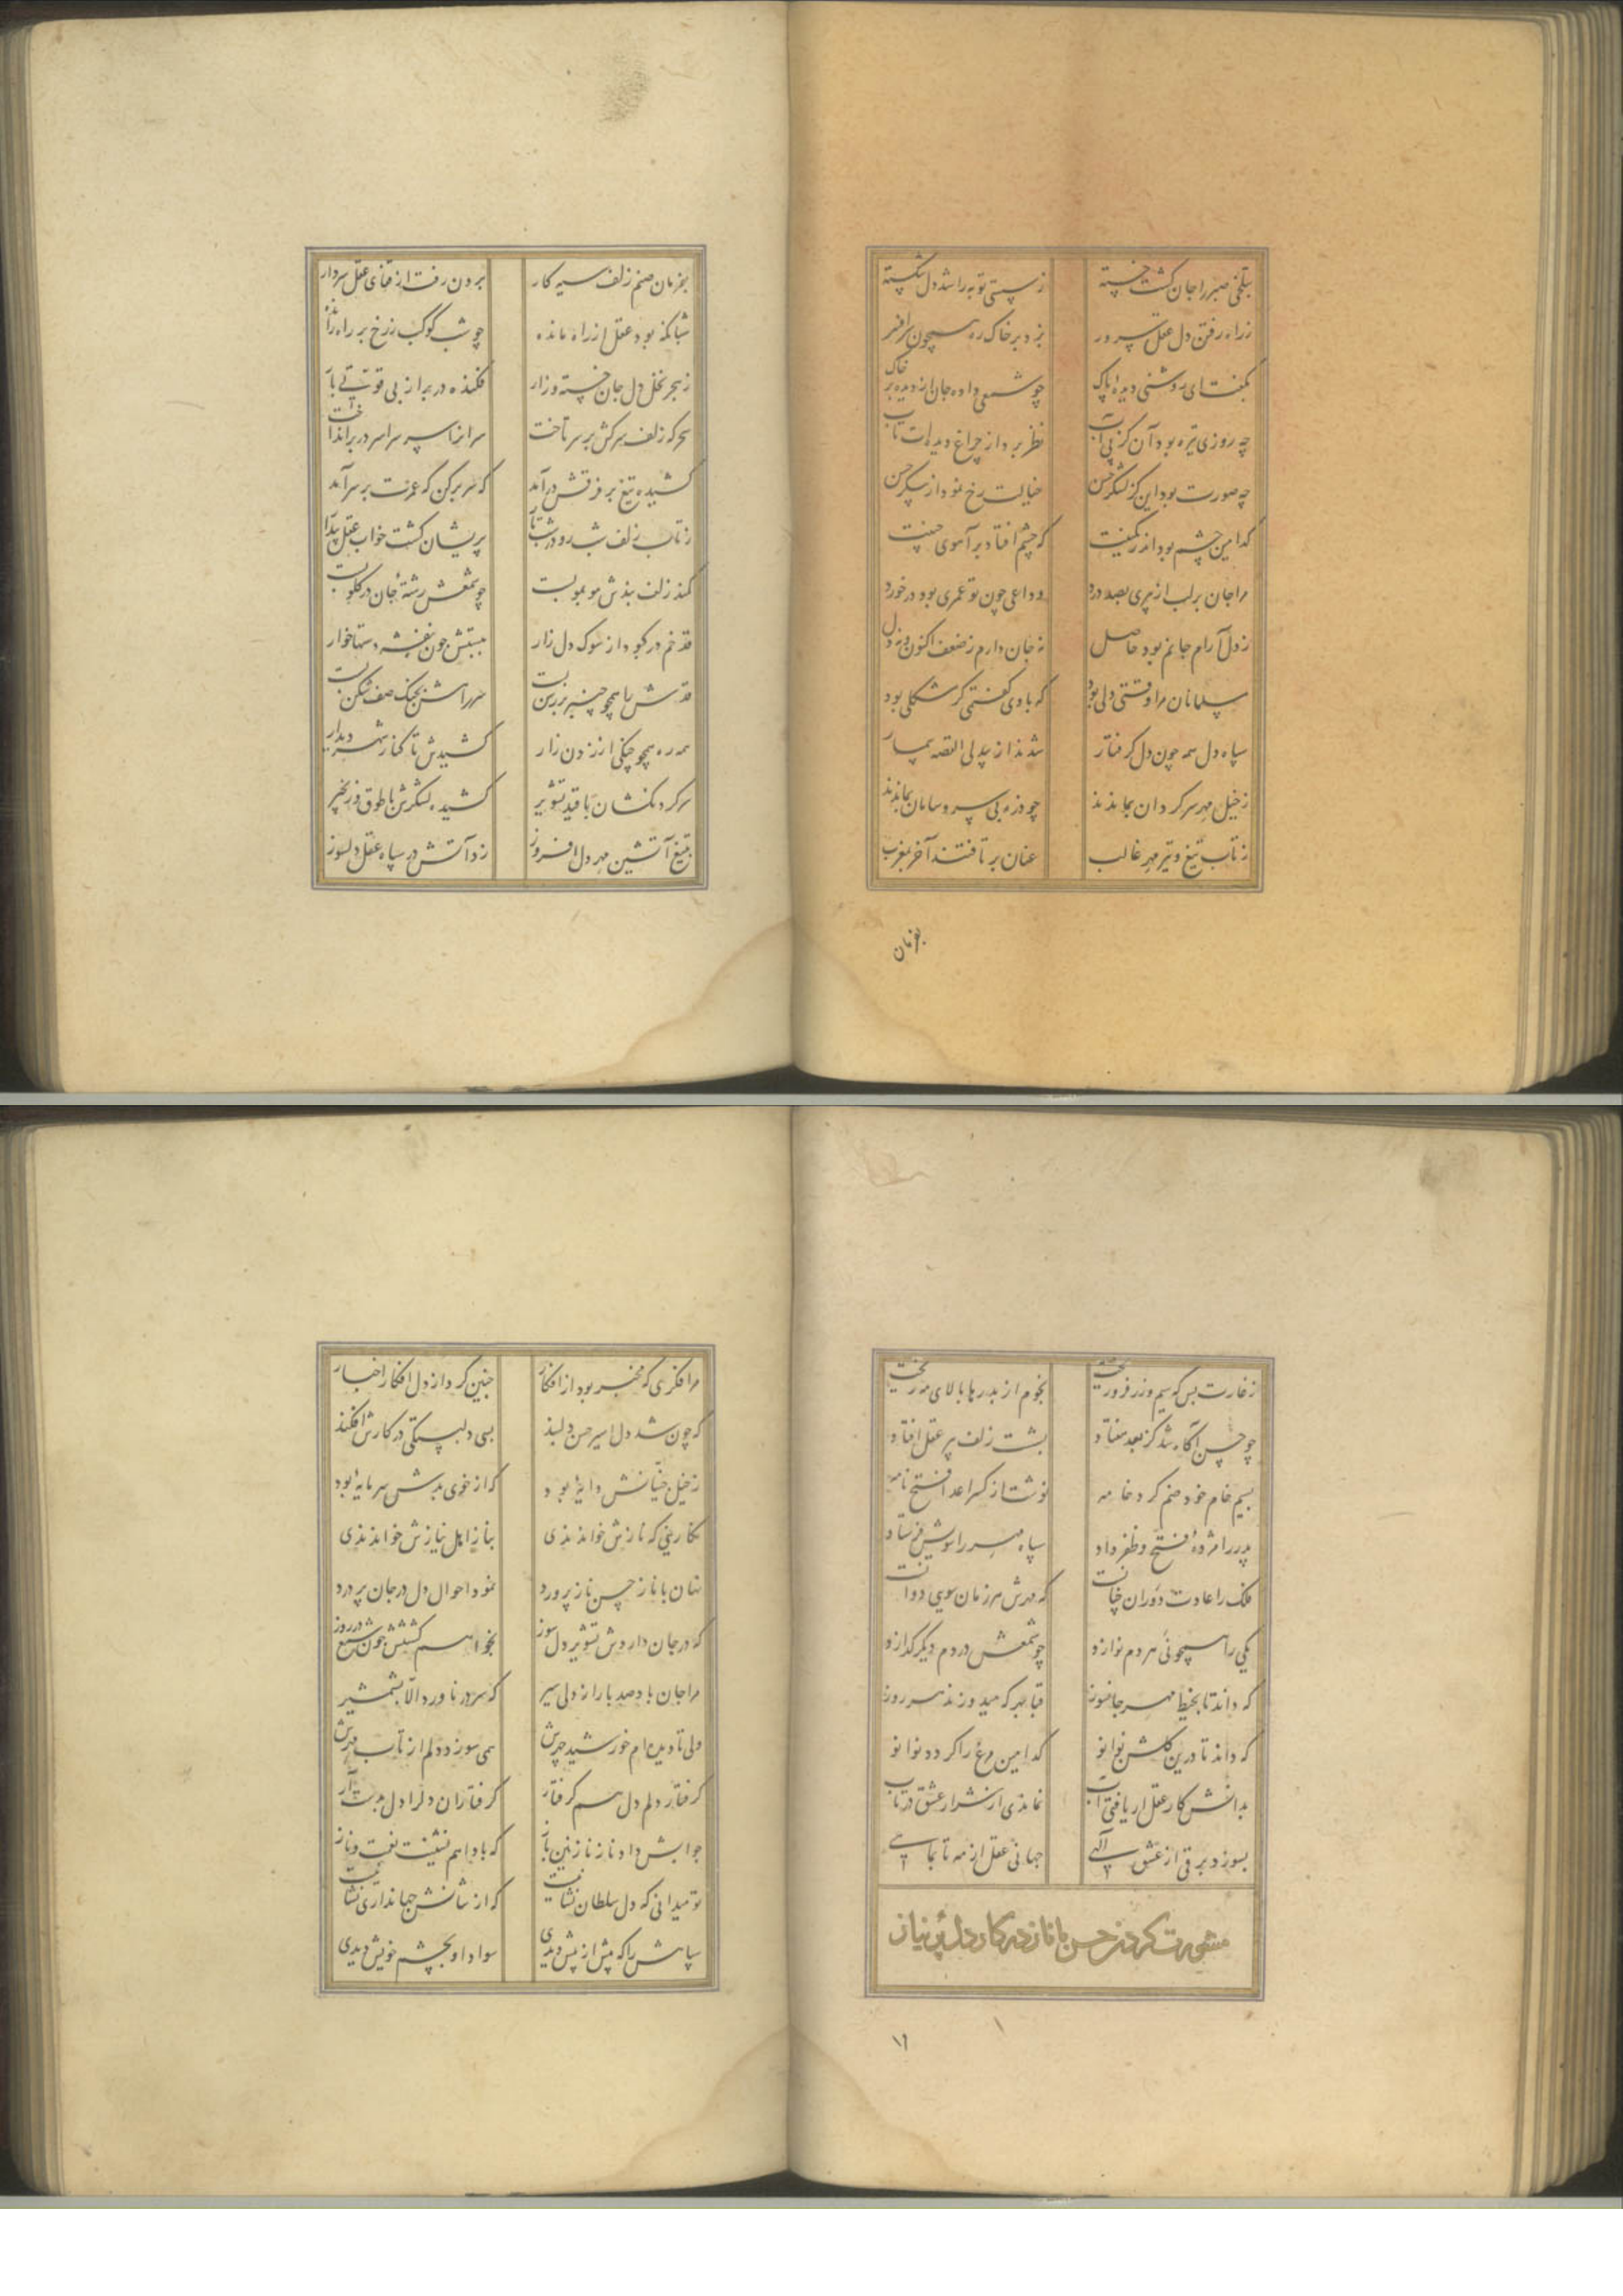 بتلخی صبر را جان گشت خسته
ز سستی توبه را شد دل شکسته
ز راه رفتن دل عقل سرور
بزد بر خاک ره همچون سرافسر
بگفت ای روشنی دیده پاک
چو شمعی داده جان از دیده بر خاک
چه روزی تیره بود آن کز پی آب
نظر برد از چراغ دیده‌ات تاب
چه صورت بود این کز لشکر حسن
خیالت رخ نمود از پیکر حسن
کدامین چشم بود اندر کمینت
که چشم افتاد بر آهوی چینت
مرا جان بر لب از پیری بصد درد
وداعی چون تو عمری بود در خورد
ز دل آرام جانم بود حاصل
نه جان دارم ز ضعف اکنون و نه دل
مسلمانان مرا وقتی دلی بود
که با وی گفتمی گر مشکلی بود
سپاه دل همه چون دل گرفتار
شدند از بیدلی القصه بیمار
ز خیل مهر سرگردان بماندند
چو ذره بی سر و سامان بماندند
ز تاب تیغ و تیر مهر غالب
عنان بر تافتند آخر بمغرب
بفرمان
بفرمان صنم زلف سیه کار
برون رفت از قفای عقل سردار
شبانگه بود عقل از راه مانده
چو شب کوکب ز رخ بر راه رانده
ز هجر نخل دل جان خسته و زار
فکنده در بر از بی قوتی بار
سحرگه زلف سرکش بر سر تاخت
سرانرا سر سراسر در بر انداخت
کشیده تیغ بر فرقش در آمد
که سر بر کن که عمرت بر سر آمد
ز تاب زلف شب رو در شب تار
پریشان گشت خواب عقل بیدار
کمند زلف بندش مو بمو بست
چو شمعش رشته جان در گلو بست
قد خم در کبود از سوک دل زار
ببستش چون بنفشه دستها خوار
قدش را همچو چنبر بر رسن بست
سرراهش بجنگ صف شکن بست
همه ره همچو چنگی از زدن زار
کشیدش تا کنار شهر دیدار
سر گردنکشان با قید تشویر
کشیده لشکرش با طوق و زنجیر
بتیغ آتشین مهر دل افروز
زد آتش در سپاه عقل دلسوز
ز غارت بس که سیم و زر فرو ریخت
نجوم از بدرها بالای مه ریخت
چو حسن آگاه شد کز بعد هفتاد
بشست زلف پیر عقل افتاد
بسیم خام خود صنم کرد خامه
نوشت از کسر اعدا فتح نامه
پدر را مژده فتح و ظفر داد
سپاه مهر را سویش فرستاد
فلک را عادت دوران چنانست
که مهرش هر زمان سویی دوانست
یکی را همچو نی هر دم نوازد
چو شمعش در دم دیگر گدازد
که داند تا بخیط مهر جانسوز
قبا بهر که میدوزند هر روز
که داند تا درین گلشن نو از نو
کدامین مرغ را گردد نوا نو
بدانش کار عقل ار یافتی آب
نماندی از شرار عشق در تاب
بسوزد برقی از عشق الهی
جهانی عقل از مه تا بماهی
مشورت کردن حسن با ناز در کار دل پر نیاز
مرا فکری که مخبر بود از افکار
چنین کرد از دل افکار اخبار
که چون شد دل اسیر حسن دلبند
بسی دلبستگی در کارش افکند
ز خیل خیانش دایه بود
که از خوی بدش سرمایه بود
نگارینی که نازش خواندندی
بناز اهل نیازش خواندندی
نهان با ناز حسن ناز پرورد
نمود احوال دل در جان پر درد
که در جان داردش تشویر دل سوز
بخواهم کشتنش چون شمع در روز
مرا جان باد صد بار از دلی سیر
که سر در ناورد الا بشمشیر
ولی تا دیده‌ام خورشید چهرش
همی سوزد دلم از تاب مهرش
گرفتار دلم دل هم گرفتار
گرفتاران دلرا دل بدست آر
جوابش داد ناز نازنین باز
که باد ایم نشینت نعمت و ناز
تو میدانی که دل سلطان نشانست
که از شانش جهانداری نشانست
سپاهش را که پیش از پیش دیدی
سواد او بچشم خویش دیدی